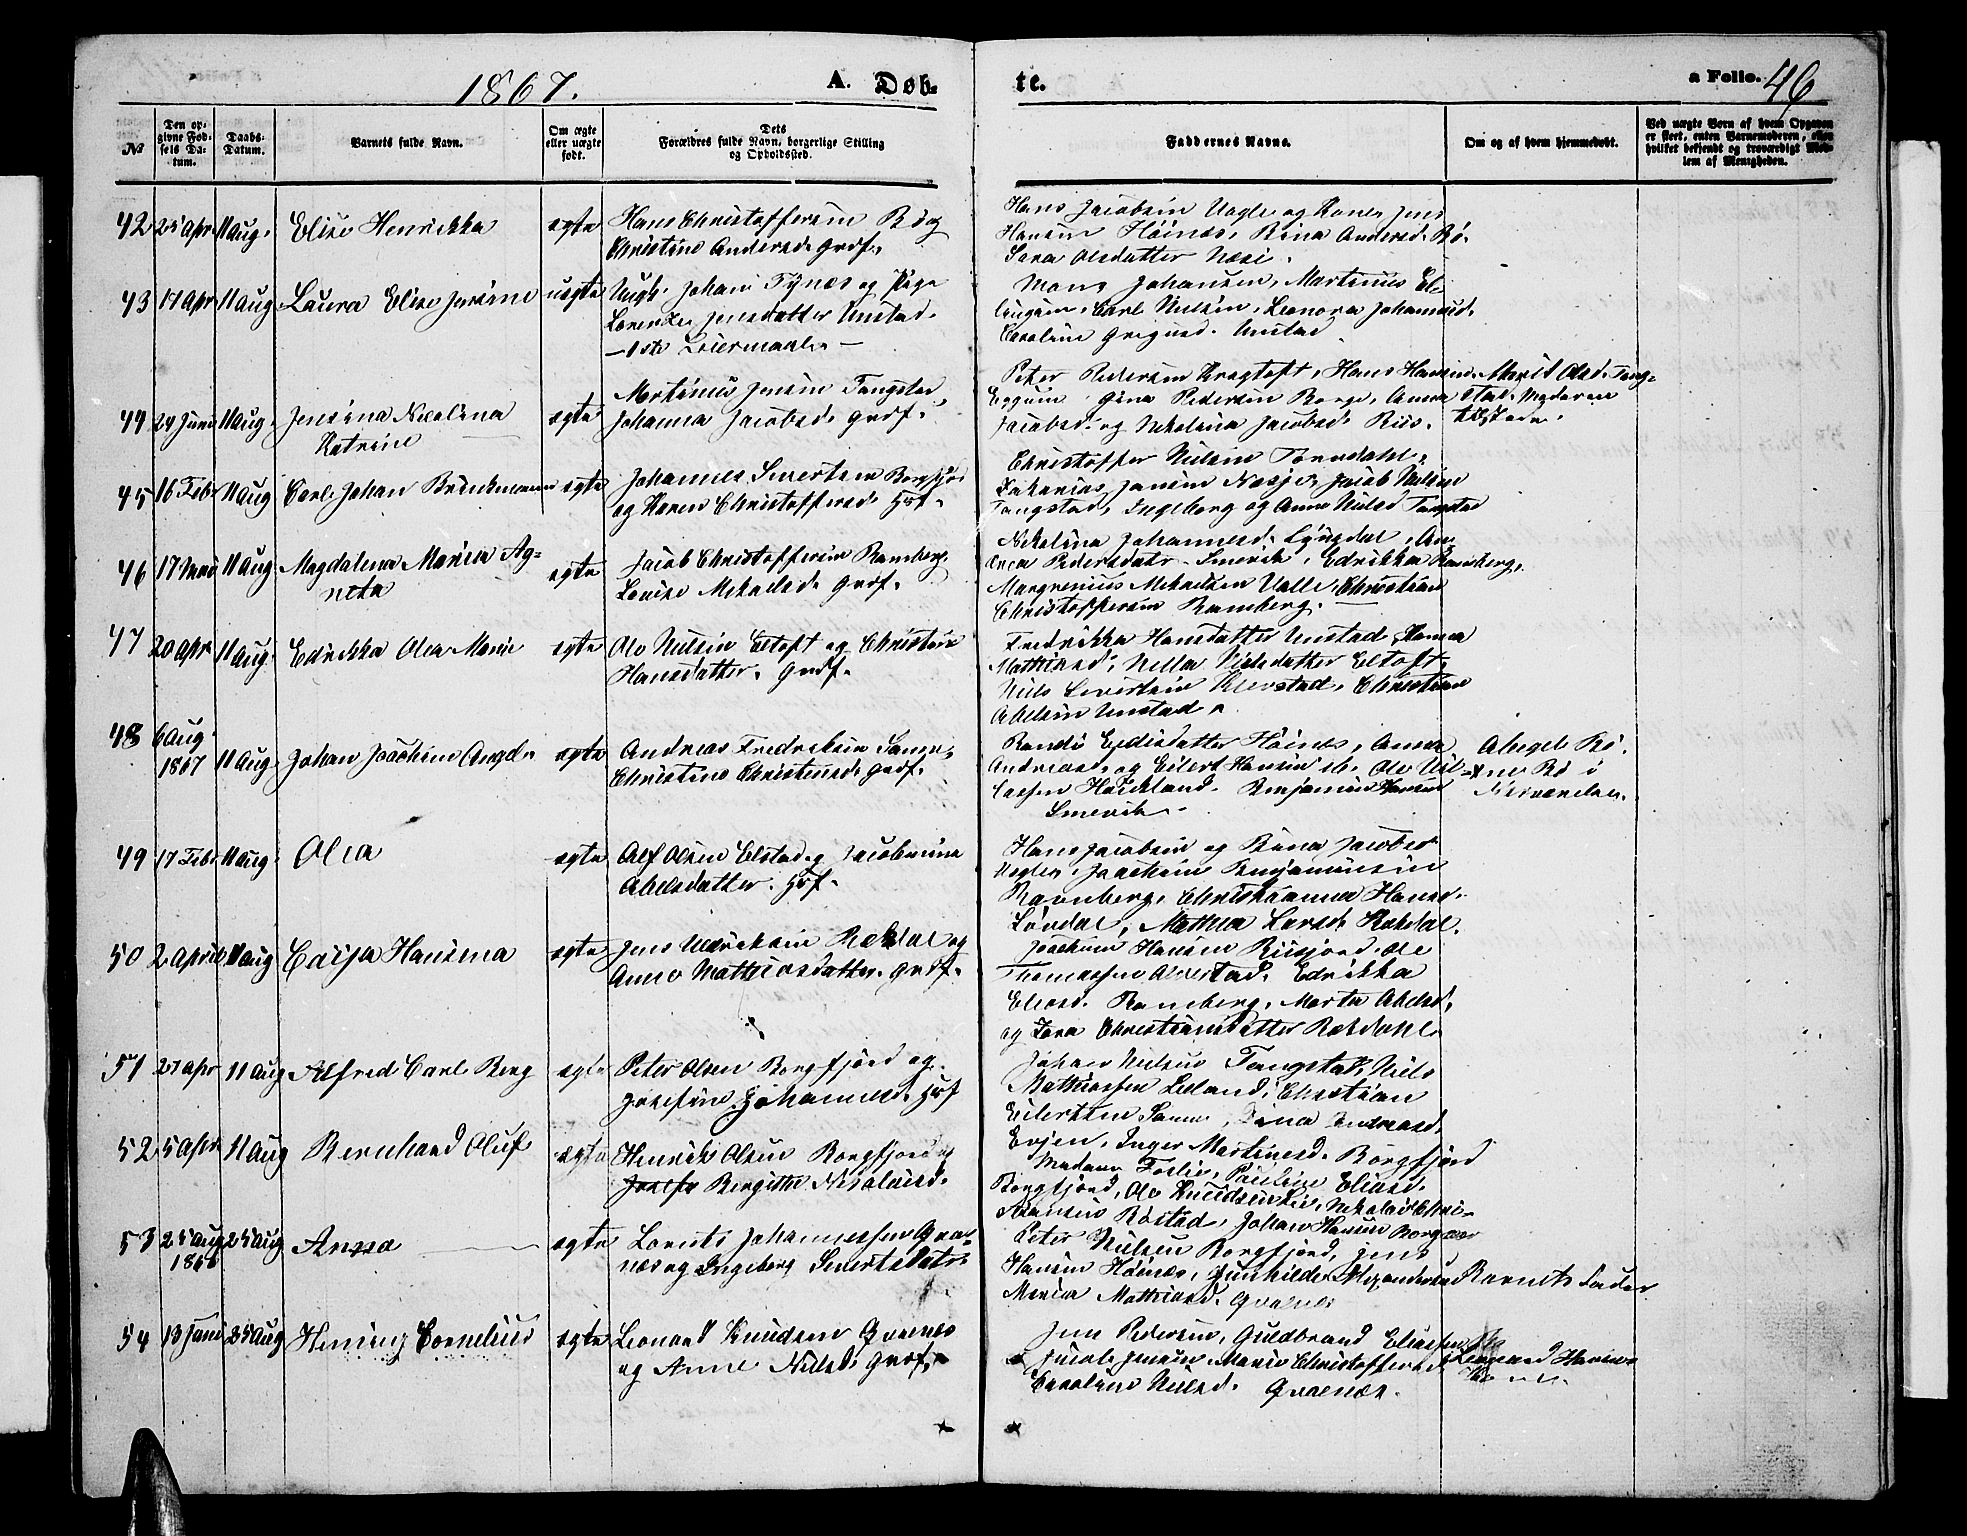 1867. A. Døb-
te. a Folio. 46
№ Den op-
givne Fød-
sels Da-
tum. Daabs-
Datum. Barnets fulde Navn. Om ægte
eller uægte
født. Dets
Forældres fulde Navn, borgerlige Stilling
og Opholdssted.
Faddernes Navne. Om og af hvem hjemmedøbt. Ved uægte Børn af hvem Opgaven
er skeet, enten Barnemoderen, eller
hvilket bekjendt og troværdigt Med-
lem af Menigheden.
42 25 Apr 11 Aug. Elise Henrikka ægte Hans Christoffersen Bø og
Christine Andersd. Grdf.
Hans Jacobsen Uagle og Kone, Jens
Hansen Høinæs, Bina Andersd. Bø.
Sara Olsdatter Næsi.
43 17 Apr 11 Aug Laura Elise Jensine uægte Ungk. Johan Tynæs og Pige
Lorentze Jensdatter Unstad.
— 1ste Leiermaal. —
Mons Johansen, Martinus El-
lingsen, Carl Nielsen, Leonora Johannesd.
Caroline Gregusd. Unstad
44 24 Juni 11 Aug. Jensina Nicolina
Katrine ægte Martinus Jensen Tangstad,
Johanna Jacobsd. Grdf.
Peter Pedersen Kragtoft, Hans Hansen
Eggum Gina Pedersen Borge, Anna
Jacobsd. og Nikolina Jacobsd. Riis.
Marit Olsd. Tang-
stad, Moderen
tilstede.
45 16 Febr 11 Aug Carl Johan Brinkmann ægte Johannes Sivertsen Borgfjord
og Karen Christoffersd. Hsf.
Christoffer Nielsen Torvdahl,
Zakarias Jensen Næsje, Jacob Nielsen
Tangstad, Ingeborg og Anne Nielsd Tangstad
46 17 Mai 11 Aug Magdalena Maria Ag-
neta ægte Jacob Christoffersen Ramberg,
Lovise Mikalsd. Grdf.
Nikolina Johannesd. Lyngdal, An-
Pedersdatr. Smevik, Edrikka Ramberg,
Margrenius Mikaelsen Valle, Christian
Christoffersen Ramberg.
47 20 Apr 11 Aug. Edrikka Olea Marie ægte Ole Nielsen Eltoft og Christine
Hansdatter. Grdf.
Fredrikka Hansdatter Unstad, Hanna
Mathiasd, Nella Nielsdatter Eltoft,
Niels Sivertsen Klerstad, Christian
Abelsen Unstad.
48 6 Aug.
1867 11 Aug Johan Joachim Angel. ægte Andreas Fredriksen Sann,
Christine Christensd. Grdf.
Randi Endisdatter Høinæs, Anna
Andreasd. og Eilert Hansen ib. Ole Nil-
Haukland. Benjamin Hansen
Smevik.
Bø i
49 17 Febr 11 Aug Olea ægte Alf Olsen Elstad og Jacobmine
Abelsdatter. Hsf.
Hans Jacobsen og Bina Jacobsd
Vagle, Joachim Benjaminsen
Ramberg, Christianna Hansd.
Løvdal, Mathea Larsd. Rekdal.
50 2 April 11 Aug Caisa Hansina ægte Jens Ulrichsen Rækdal og
Anne Mathiasdatter. Grdf.
Joachim Hansen Riisjord, Ole
Thomassen Alvestad, Edrikka
Eliasd. Ramberg, Marta Abelsd.
og Sara Christiansdatter Rækdahl
51 27 Apr 11 Aug Alfred Carl Berg ægte Peter Olsen Borgfjord og
Josefine Johannesd. Hsf
Johan Nielsen Tangstad, Niels
Mathiassen Leland, Christian
Eilertsen Sann, Andreasd.
Evjen, Inger Martinesd. Borgfjord
52 5 Apr 11 Aug Bernhard Oluf ægte Henrik Olsen Borgfjord og
Bergitte Nicolaisd.
Madam Foslie, Pauline Eliasd.
Borgfjord, Ole Knudsen Lie, Nikolai Chri-
stiansen Røstad, Johan Hansen Borgvær
53 25 Aug
186 25 Aug Anna ægte Lorents Johannessen Qval-
næs og Ingeborg Sivertsdatr.
Peter Nielsen Borgfjord, Jens
Hansen Høinæs, Gunhilde Alexandersd
Maria Mathiasd. Qvalnæs
Barnets Fader
54 13 Juni 25 Aug Hening Cornelius ægte Leonard Knudsen Qvalnæs
og Anne Nielsd. Grdf.
Jens Pedersen, Guldbrand Eliassen,
Jacob Jensen, Marie Christoffersd.
Caroline Nielsd. Qvalnæs.
Leonard Hansen